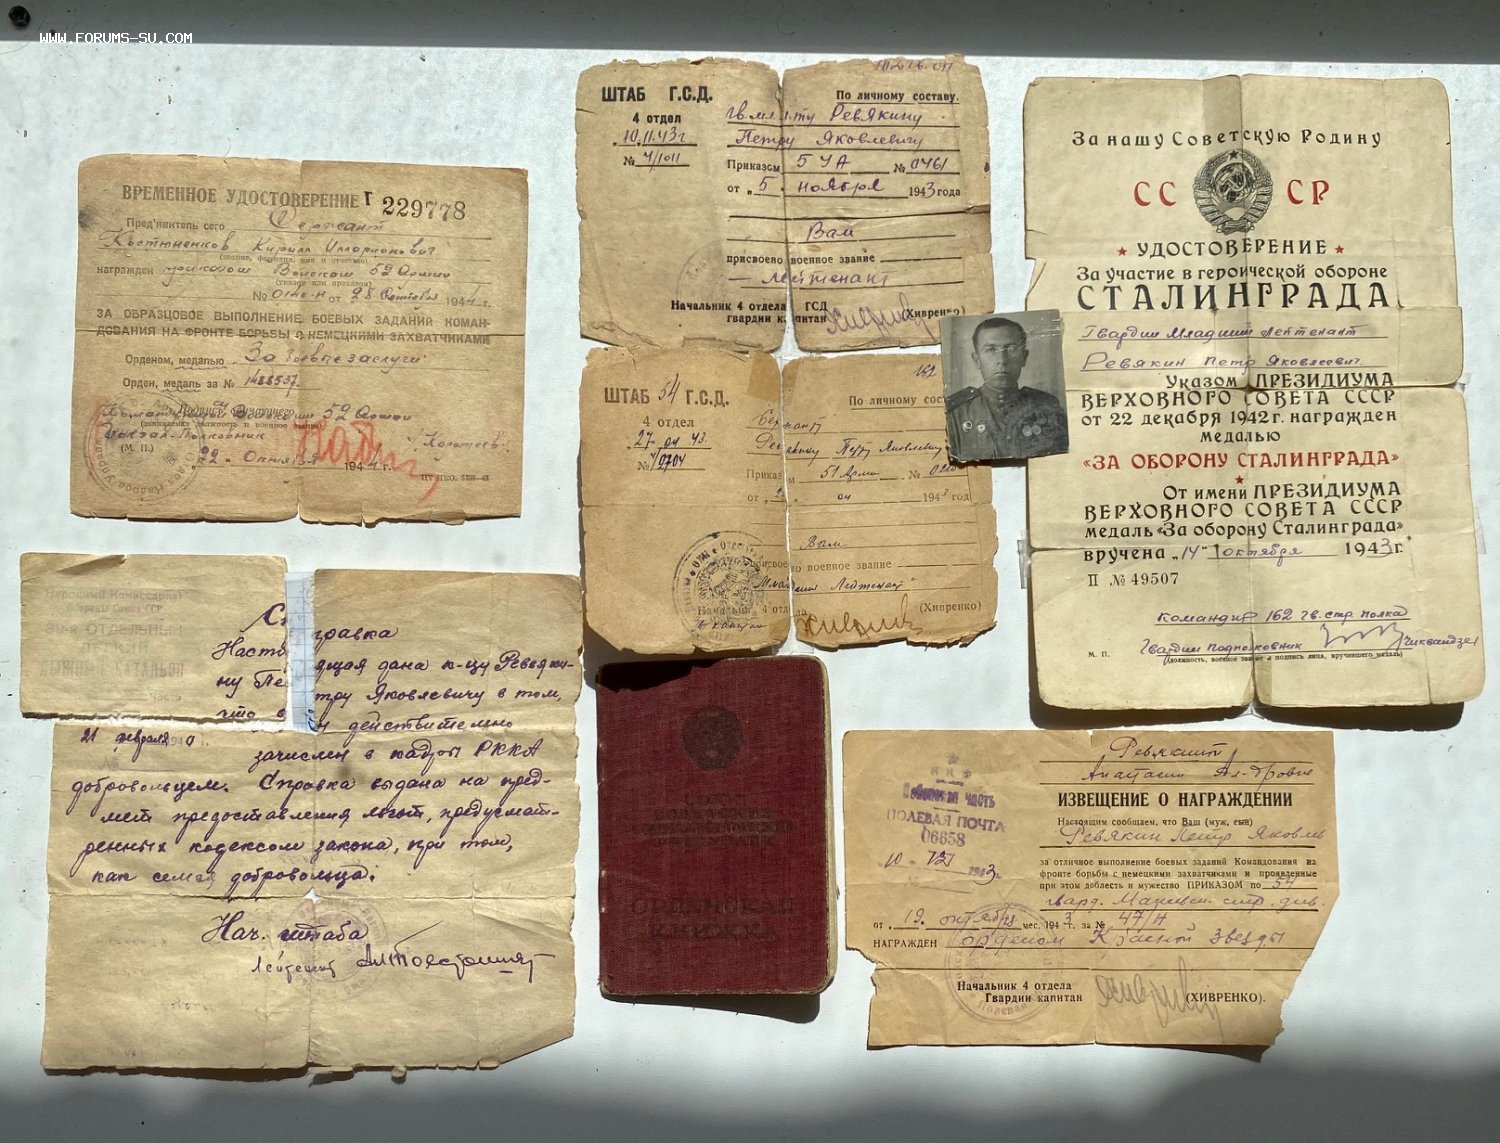 WWW.FORUMS-SU.COM
ВРЕМЕННОЕ УДОСТОВЕРЕНИЕ Г 229778
Пред'явитель сего Сержант
Костюненков Кирилл Илларионович
(звание, фамилия, имя и отчество)
награжден приказом Войскам 52 Армии
(указом или приказом)
№ 0140-Н от 28 Октября 1944 г.
ЗА ОБРАЗЦОВОЕ ВЫПОЛНЕНИЕ БОЕВЫХ ЗАДАНИЙ КОМАН-
ДОВАНИЯ НА ФРОНТЕ БОРЬБЫ С НЕМЕЦКИМИ ЗАХВАТЧИКАМИ
Орденом, медалью За боевые заслуги
Орден, медаль за № 1488537
52 Армии
Полковник Коротеев
(М. П.) Октября 1944 г.
ШТАБ Г.С.Д.
4 отдел
10.11.43г
№ 4/1011
162 гв. сп
По личному составу.
гв. мл. л-ту Ревякину
Петру Яковлевичу
Приказом 5 УА № 0461
от „5„ ноября 1943 года
Вам
присвоено военное звание
лейтенант
Начальник 4 отдела ГСД
гвардии капитан (Хивренко)
ШТАБ 54 Г.С.Д.
4 отдел
27 04 43.
№ 4/0704
162
По личному соста
Сержанту
Ревякину Петру Яковлевичу
Приказом 51 Арми №
от 04 194 год
Вам
присвоено военное звание
Младший Лейтенант"
Начальник 4 отдела
капитан (Хивренко)
За нашу Советскую Родину
СССР
УДОСТОВЕРЕНИЕ
За участие в героической обороне
СТАЛИНГРАДА
Гвардии Младший Лейтенант
Ревякин Петр Яковлевич
Указом ПРЕЗИДИУМА
ВЕРХОВНОГО СОВЕТА СССР
от 22 декабря 1942 г. награжден
медалью
«ЗА ОБОРОНУ СТАЛИНГРАДА»
От имени ПРЕЗИДИУМА
ВЕРХОВНОГО СОВЕТА СССР
медаль «За оборону Сталинграда»
вручена „14" октября 1943 г.
П № 49507
Командир 162 гв. стр. полка
М. П. Гвардии подполковник Чиквандзе
(должность, военное звание и подпись лица, вручившего медаль)
Народный Комиссариат
Обороны Союза ССР
ОТДЕЛЬНЫЙ
БАТАЛЬОН
21 февраля
Справка
Настоящая дана к-цу Ревяки-
ну Петру Яковлевичу в том,
что он действительно
зачислен в кадры РККА
добровольцем. Справка выдана на пред-
мет предоставления льгот, предусмот-
ренных кодексом закона, при том,
как семья добровольца.
Нач. штаба
Лейтенант
ОРДЕНСКАЯ
КНИЖКА
НКО
Войсковая часть
ПОЛЕВАЯ ПОЧТА
06658
„10„ 1943г.
Ревякиной
Анастасии Ал-дровне
ИЗВЕЩЕНИЕ О НАГРАЖДЕНИИ
Настоящим сообщаем, что Ваш (муж, сын)
Ревякин Петр Яковлев
за отличное выполнение боевых заданий Командования на
фронте борьбы с немецкими захватчиками и проявленные
при этом доблесть и мужество ПРИКАЗОМ по 54
гвард. стр. див.
от 19. октября мес. 1943 г. за № 47/н
НАГРАЖДЕН орденом Красной Звезды
Начальник 4 отдела
Гвардии капитан (ХИВРЕНКО).